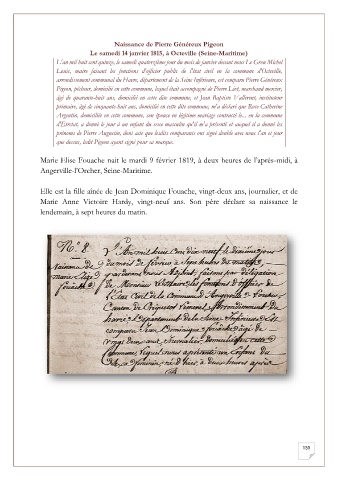 Naissance de Pierre Généreux Pigeon
Le samedi 14 janvier 1815, à Octeville (Seine-Maritime)
L'an mil huit cent quinze, le samedi quatorzième jour du mois de janvier devant nous
Louis, maire faisant les fonctions d'officier public de l'état civil en la commune d'Octeville,
arrondissement communal du Havre, département de la Seine Inférieure, est comparu Pierre Généreux
Pigeon, pêcheur, domicilié en cette commune, lequel était accompagné de Pierre marchand mercier,
âgé de quarante-huit ans, domicilié en cette dite commune, et Jean Baptiste instituteur
primaire, âgé de cinquante-huit ans, domicilié en cette dite commune, m'a déclaré que Rose Catherine
Argentin, domiciliée en cette commune, son épouse en légitime mariage contracté en la commune
d'Etretat, a donné le jour à un enfant du sexe masculin qu'il m'a présenté et auquel il a donné les
prénoms de Pierre Augustin, dont acte que lesdits comparants ont signé double avec nous l'an et jour
que dessus, ledit Pigeon ayant signé pour sa marque.
Marie Elise Fouache nait le mardi 9 février 1819, à deux heures de l'après-midi, à
Angerville-l'Orcher, Seine-Maritime.
Elle est la fille aînée de Jean Dominique Fouache, vingt-deux ans, journalier, et de
Marie Anne Victoire Hardy, vingt-neuf ans. Son père déclare sa naissance le
lendemain, à sept heures du matin.
N° 8.
L'An mil huit cent dix neuf le dixième jour
naissance de du mois de février à sept heures du matin
marie elise pardevant nous adjoint, faisant par délégation
fouache de Monsieur le Maire les fonctions d'officier de
l'État Civil de la Commune d'Angerville l'orcher
Canton de Criquetot Lesneval, arrondissement du
havre, Département de la Seine Inférieure, est
comparu Jean Dominique fouache âgé de
vingt deux ans, journalier, domicilié en cette
Commune, lequel nous a présenté un Enfant du
Sexe féminin, né d'hier, à deux heures après
159